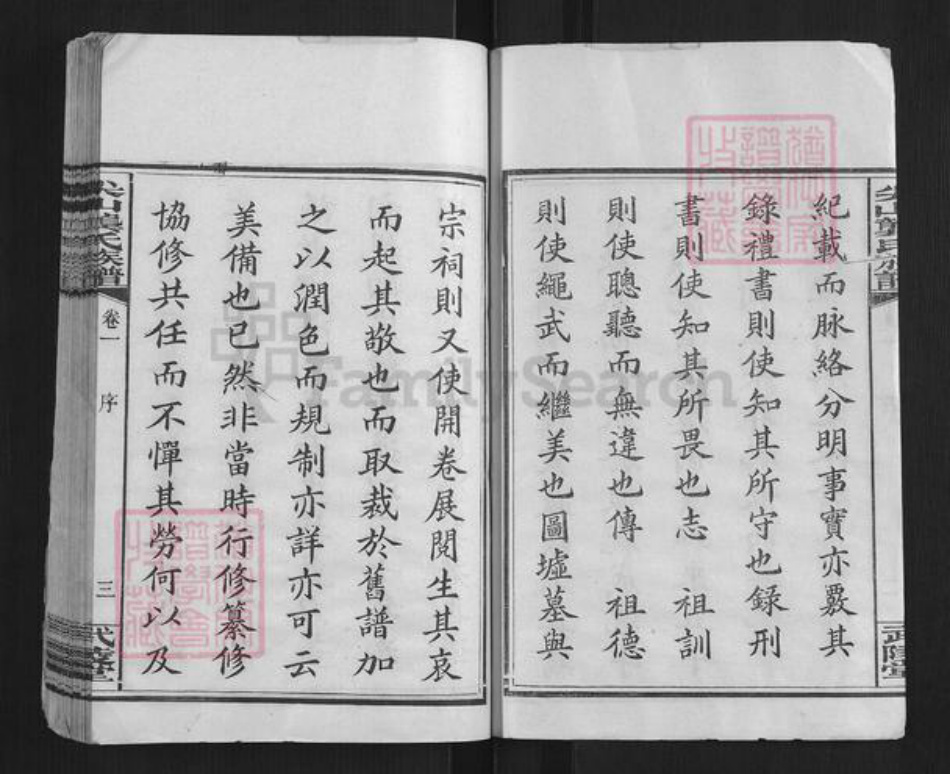 紀載而脉絡分明事實亦覈其
錄禮書則使知其所守也録刑
書則使知其所畏也志 祖訓
則使聰聽而無違也傳 祖德
則使繩武而繼美也圖墟墓與
宗祠則又使開卷展閱生其哀
而起其敬也而取裁於舊譜加
之以潤色而規制亦詳亦可云
美備也已然非當時行修纂修
協修共任而不憚其勞何以及
尖山龔氏族譜
卷一
序
三
武陵堂
FamilySearch